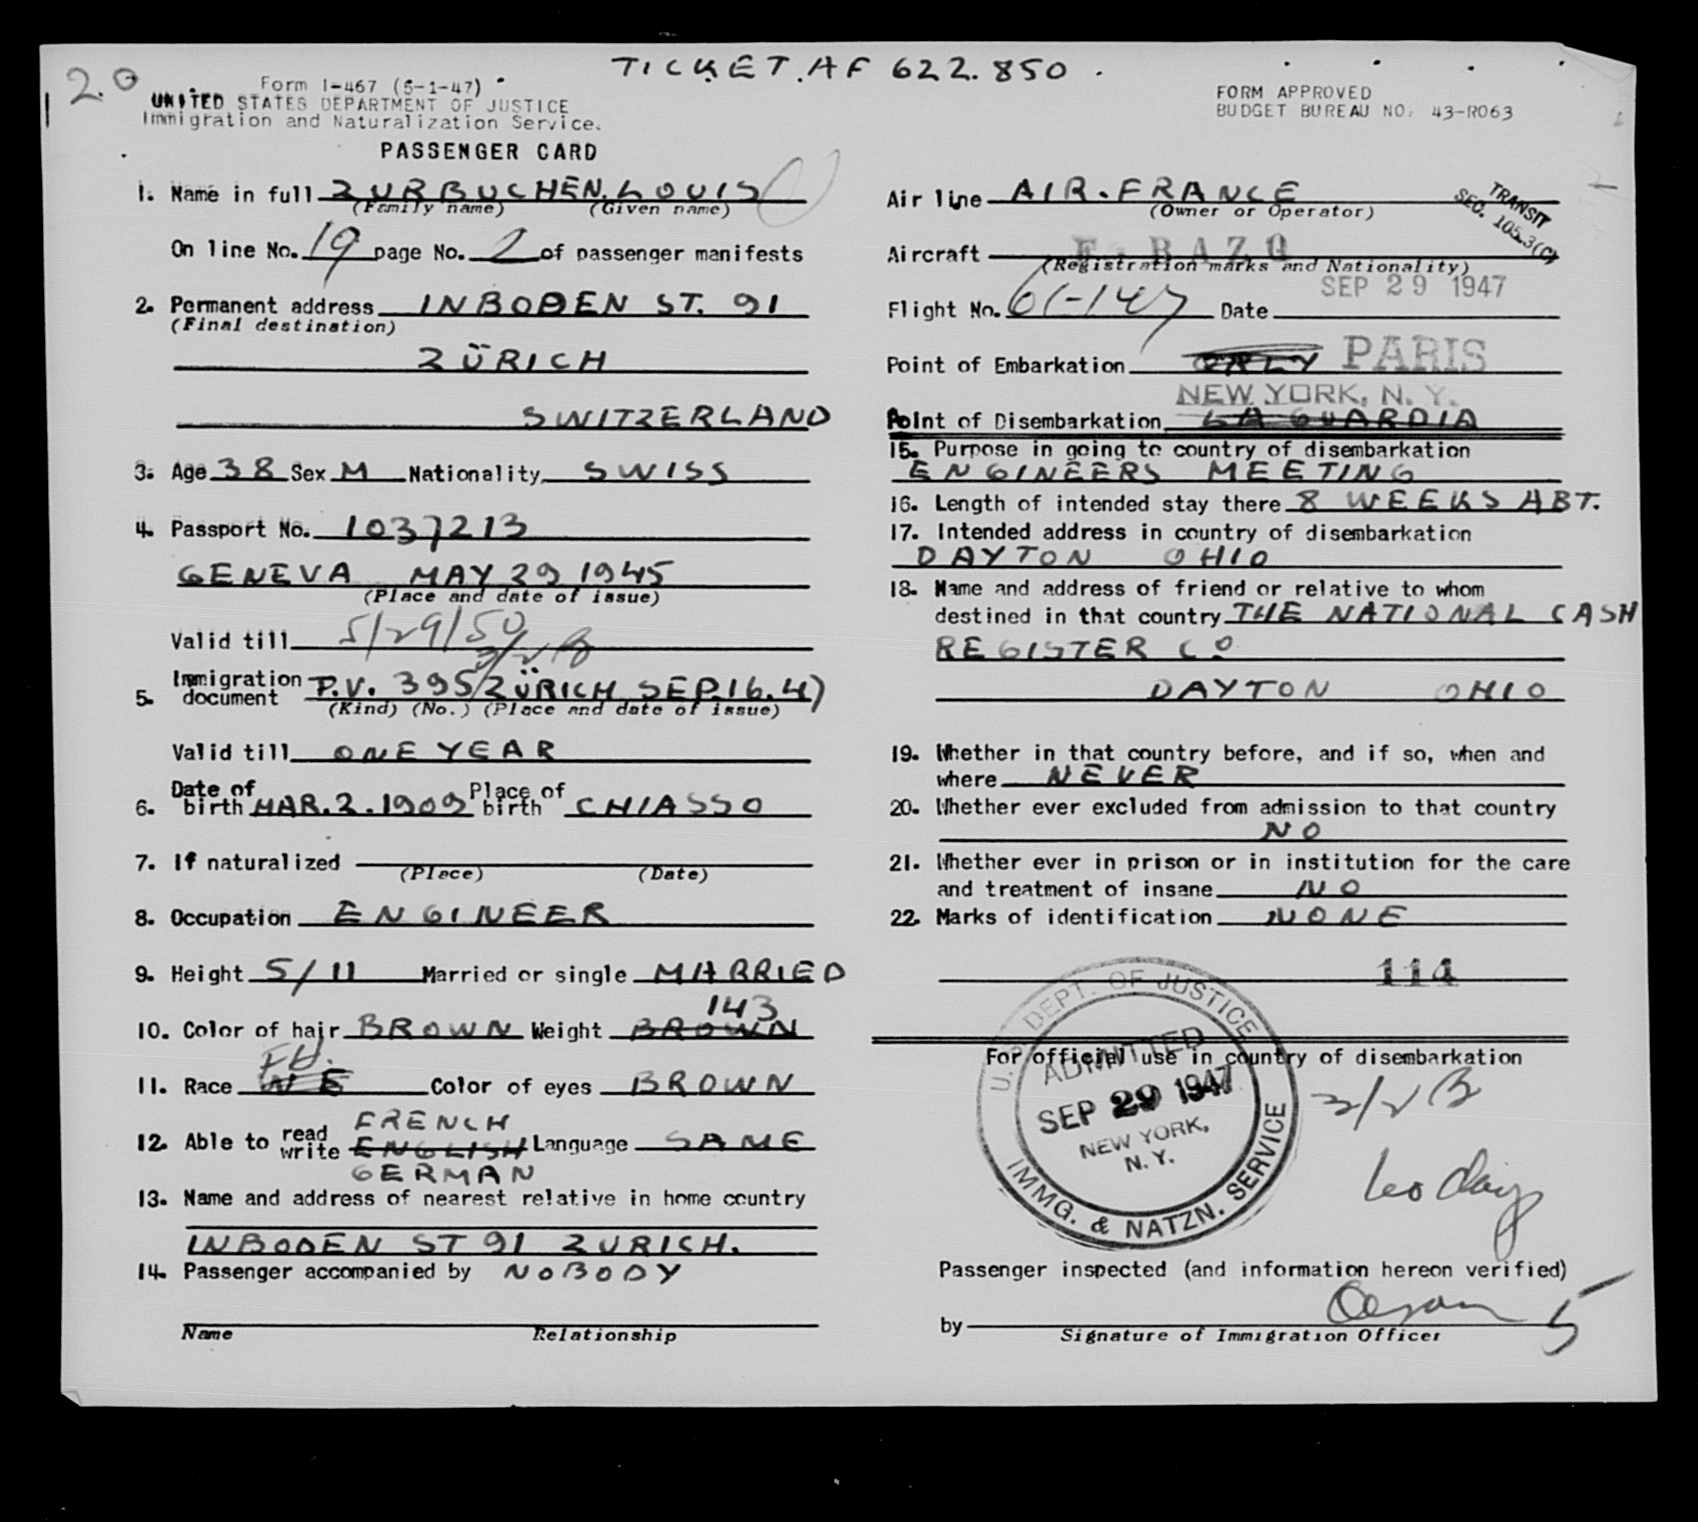 TICKET. AF 622.850
2.0
Form I-467 (5-1-47)
UNITED STATES DEPARTMENT OF JUSTICE
Immigration and Naturalization Service.
PASSENGER CARD
1. Name in full ZURBUCHEN, LOUIS
(Family name) (Given name)
On line No. 19 page No. 2 of passenger manifests
2. Permanent address INBODEN ST. 91
(Final destination)
ZÜRICH
SWITZERLAND
3. Age 38 Sex M Nationality SWISS
4. Passport No. 1037213
GENEVA MAY 29 1945
(Place and date of issue)
Valid till 5/29/50
3/2 B
5. Immigration document P.V. 395 ZÜRICH SEP. 16. 47
(Kind) (No.) (Place and date of issue)
Valid till ONE YEAR
6. Date of birth MAR. 2. 1909 Place of birth CHIASSO
7. If naturalized
(Place) (Date)
8. Occupation ENGINEER
9. Height 5/11 Married or single MARRIED
143
10. Color of hair BROWN Weight BROWN
11. Race Color of eyes BROWN
FRENCH
12. Able to read write ENGLISH Language SAME
GERMAN
13. Name and address of nearest relative in home country
INBODEN ST 91 ZURICH.
14. Passenger accompanied by NOBODY
Name Relationship
FORM APPROVED
BUDGET BUREAU NO. 43-R063
Air line AIR. FRANCE
(Owner or Operator)
TRANSIT
SEC. 105.3(C)
Aircraft F. BAZQ
(Registration marks and Nationality)
SEP 29 1947
Flight No. 61-147 Date
Point of Embarkation ORLY PARIS
NEW YORK, N. Y.
Point of Disembarkation LA GUARDIA
15. Purpose in going to country of disembarkation
ENGINEERS MEETING
16. Length of intended stay there 8 WEEKS ABT.
17. Intended address in country of disembarkation
DAYTON OHIO
18. Name and address of friend or relative to whom
destined in that country THE NATIONAL CASH
REGISTER CO
DAYTON OHIO
19. Whether in that country before, and if so, when and
where NEVER
20. Whether ever excluded from admission to that country
NO
21. Whether ever in prison or in institution for the care
and treatment of insane NO
22. Marks of identification NONE
114
For official use in country of disembarkation
U. S. DEPT. OF JUSTICE
ADMITTED
SEP 29 1947
NEW YORK,
N. Y.
IMMG. & NATZN. SERVICE
3/2 B
60 days
Passenger inspected (and information hereon verified)
by 5
Signature of Immigration Officer